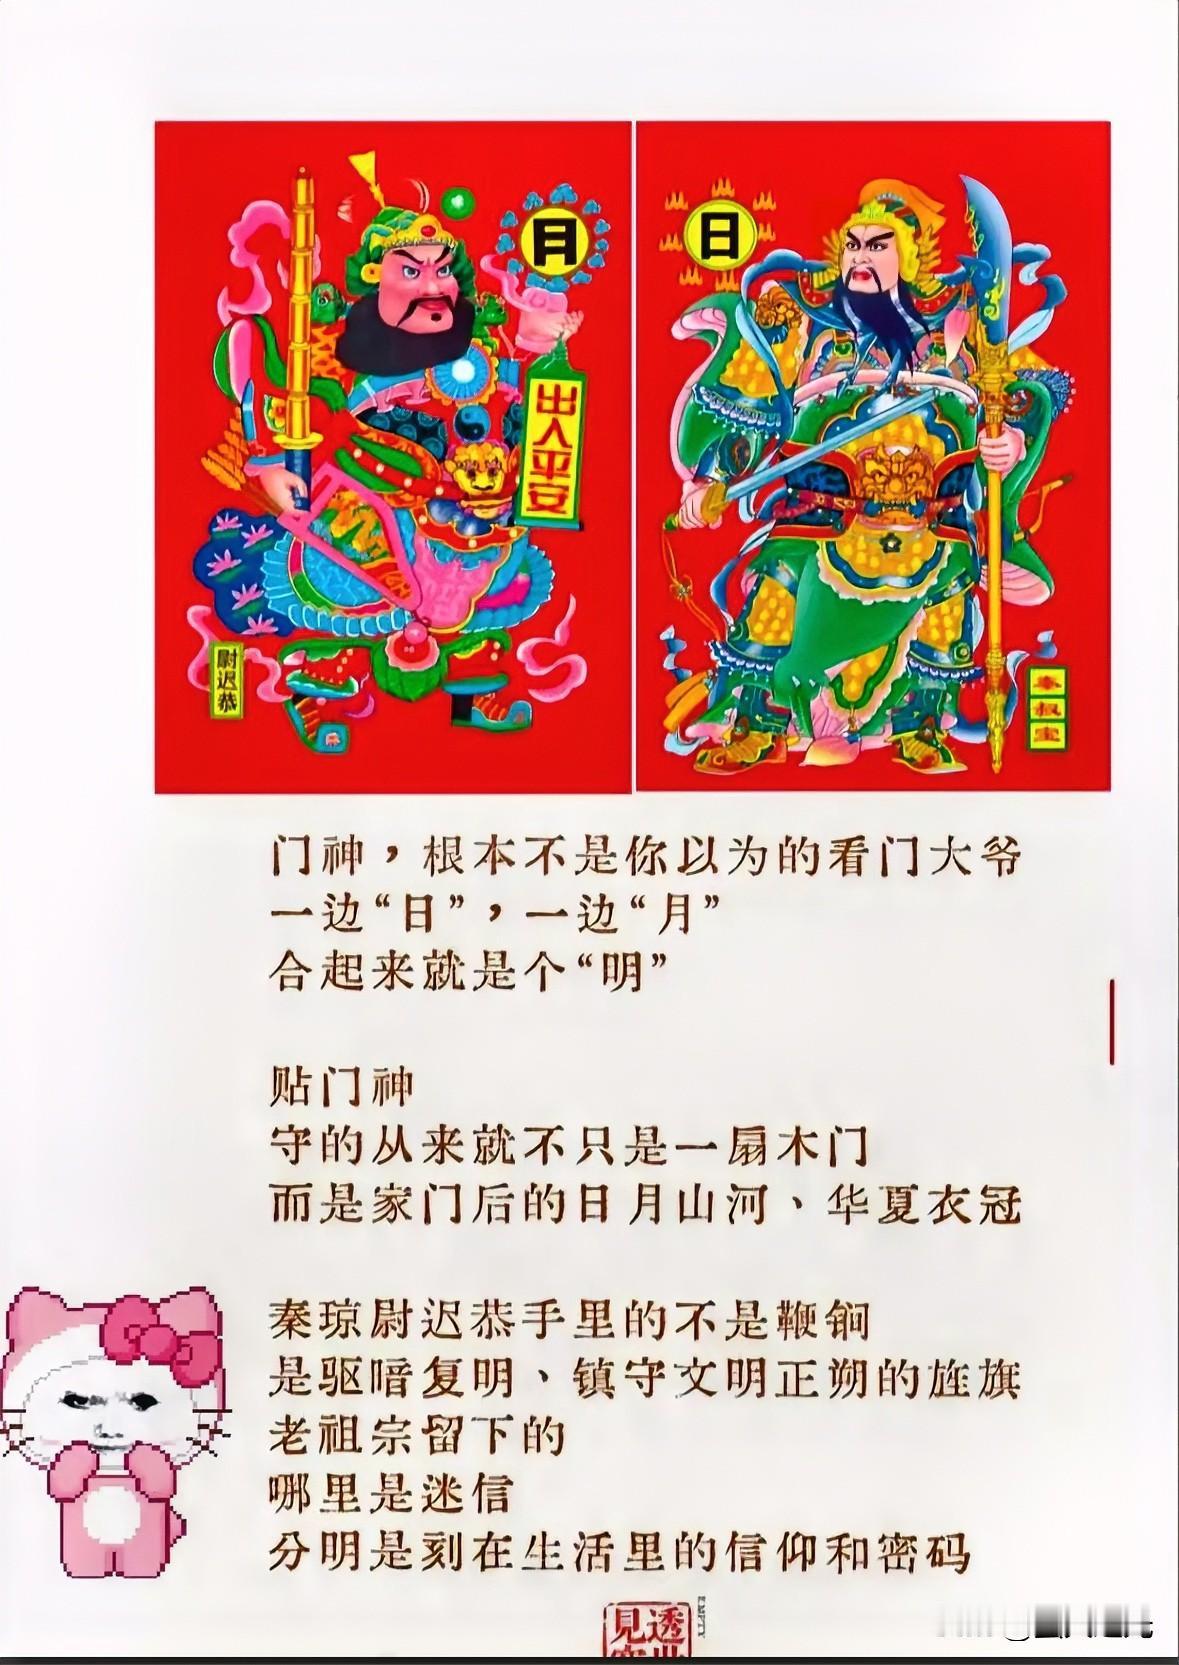 月
出入平安
尉迟恭
日
秦叔宝
门神，根本不是你以为的看门大爷
一边“日”，一边“月”
合起来就是个“明”
贴门神
守的从来就不只是一扇木门
而是家门后的日月山河、华夏衣冠
秦琼尉迟恭手里的不是鞭锏
是驱暗复明、镇守文明正朔的旌旗
老祖宗留下的
哪里是迷信
分明是刻在生活里的信仰和密码
見透